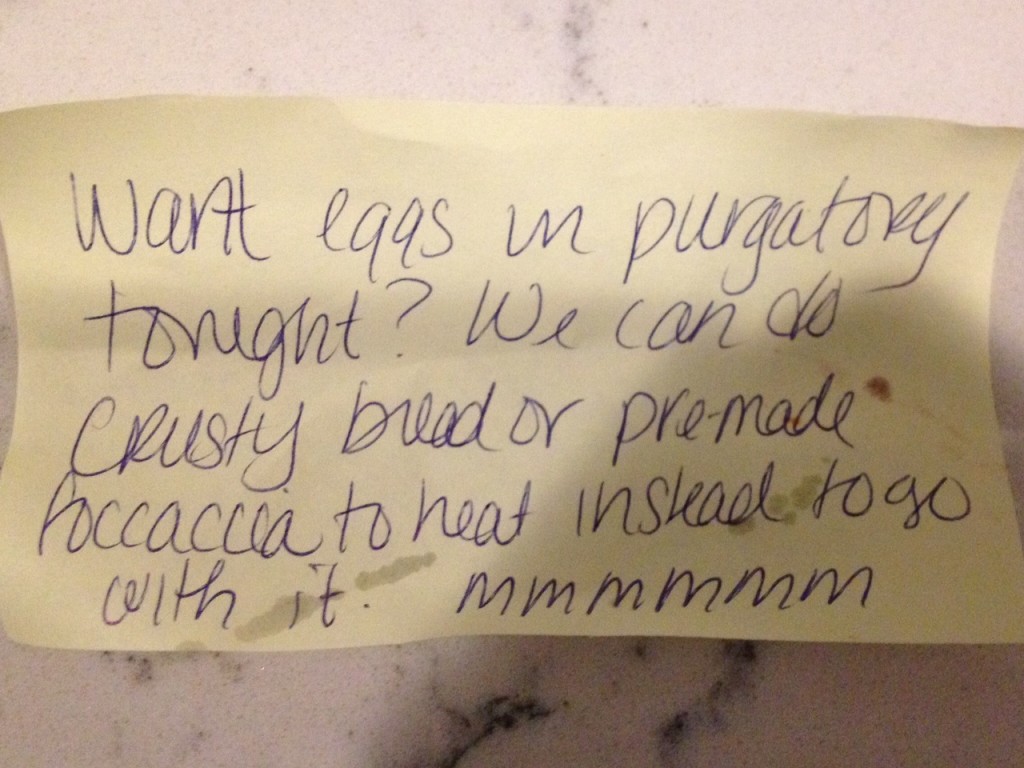 Want eggs in purgatory
tonight? We can do
crusty bread or pre-made
foccaccia to heat instead to go
with it. mmmmmm